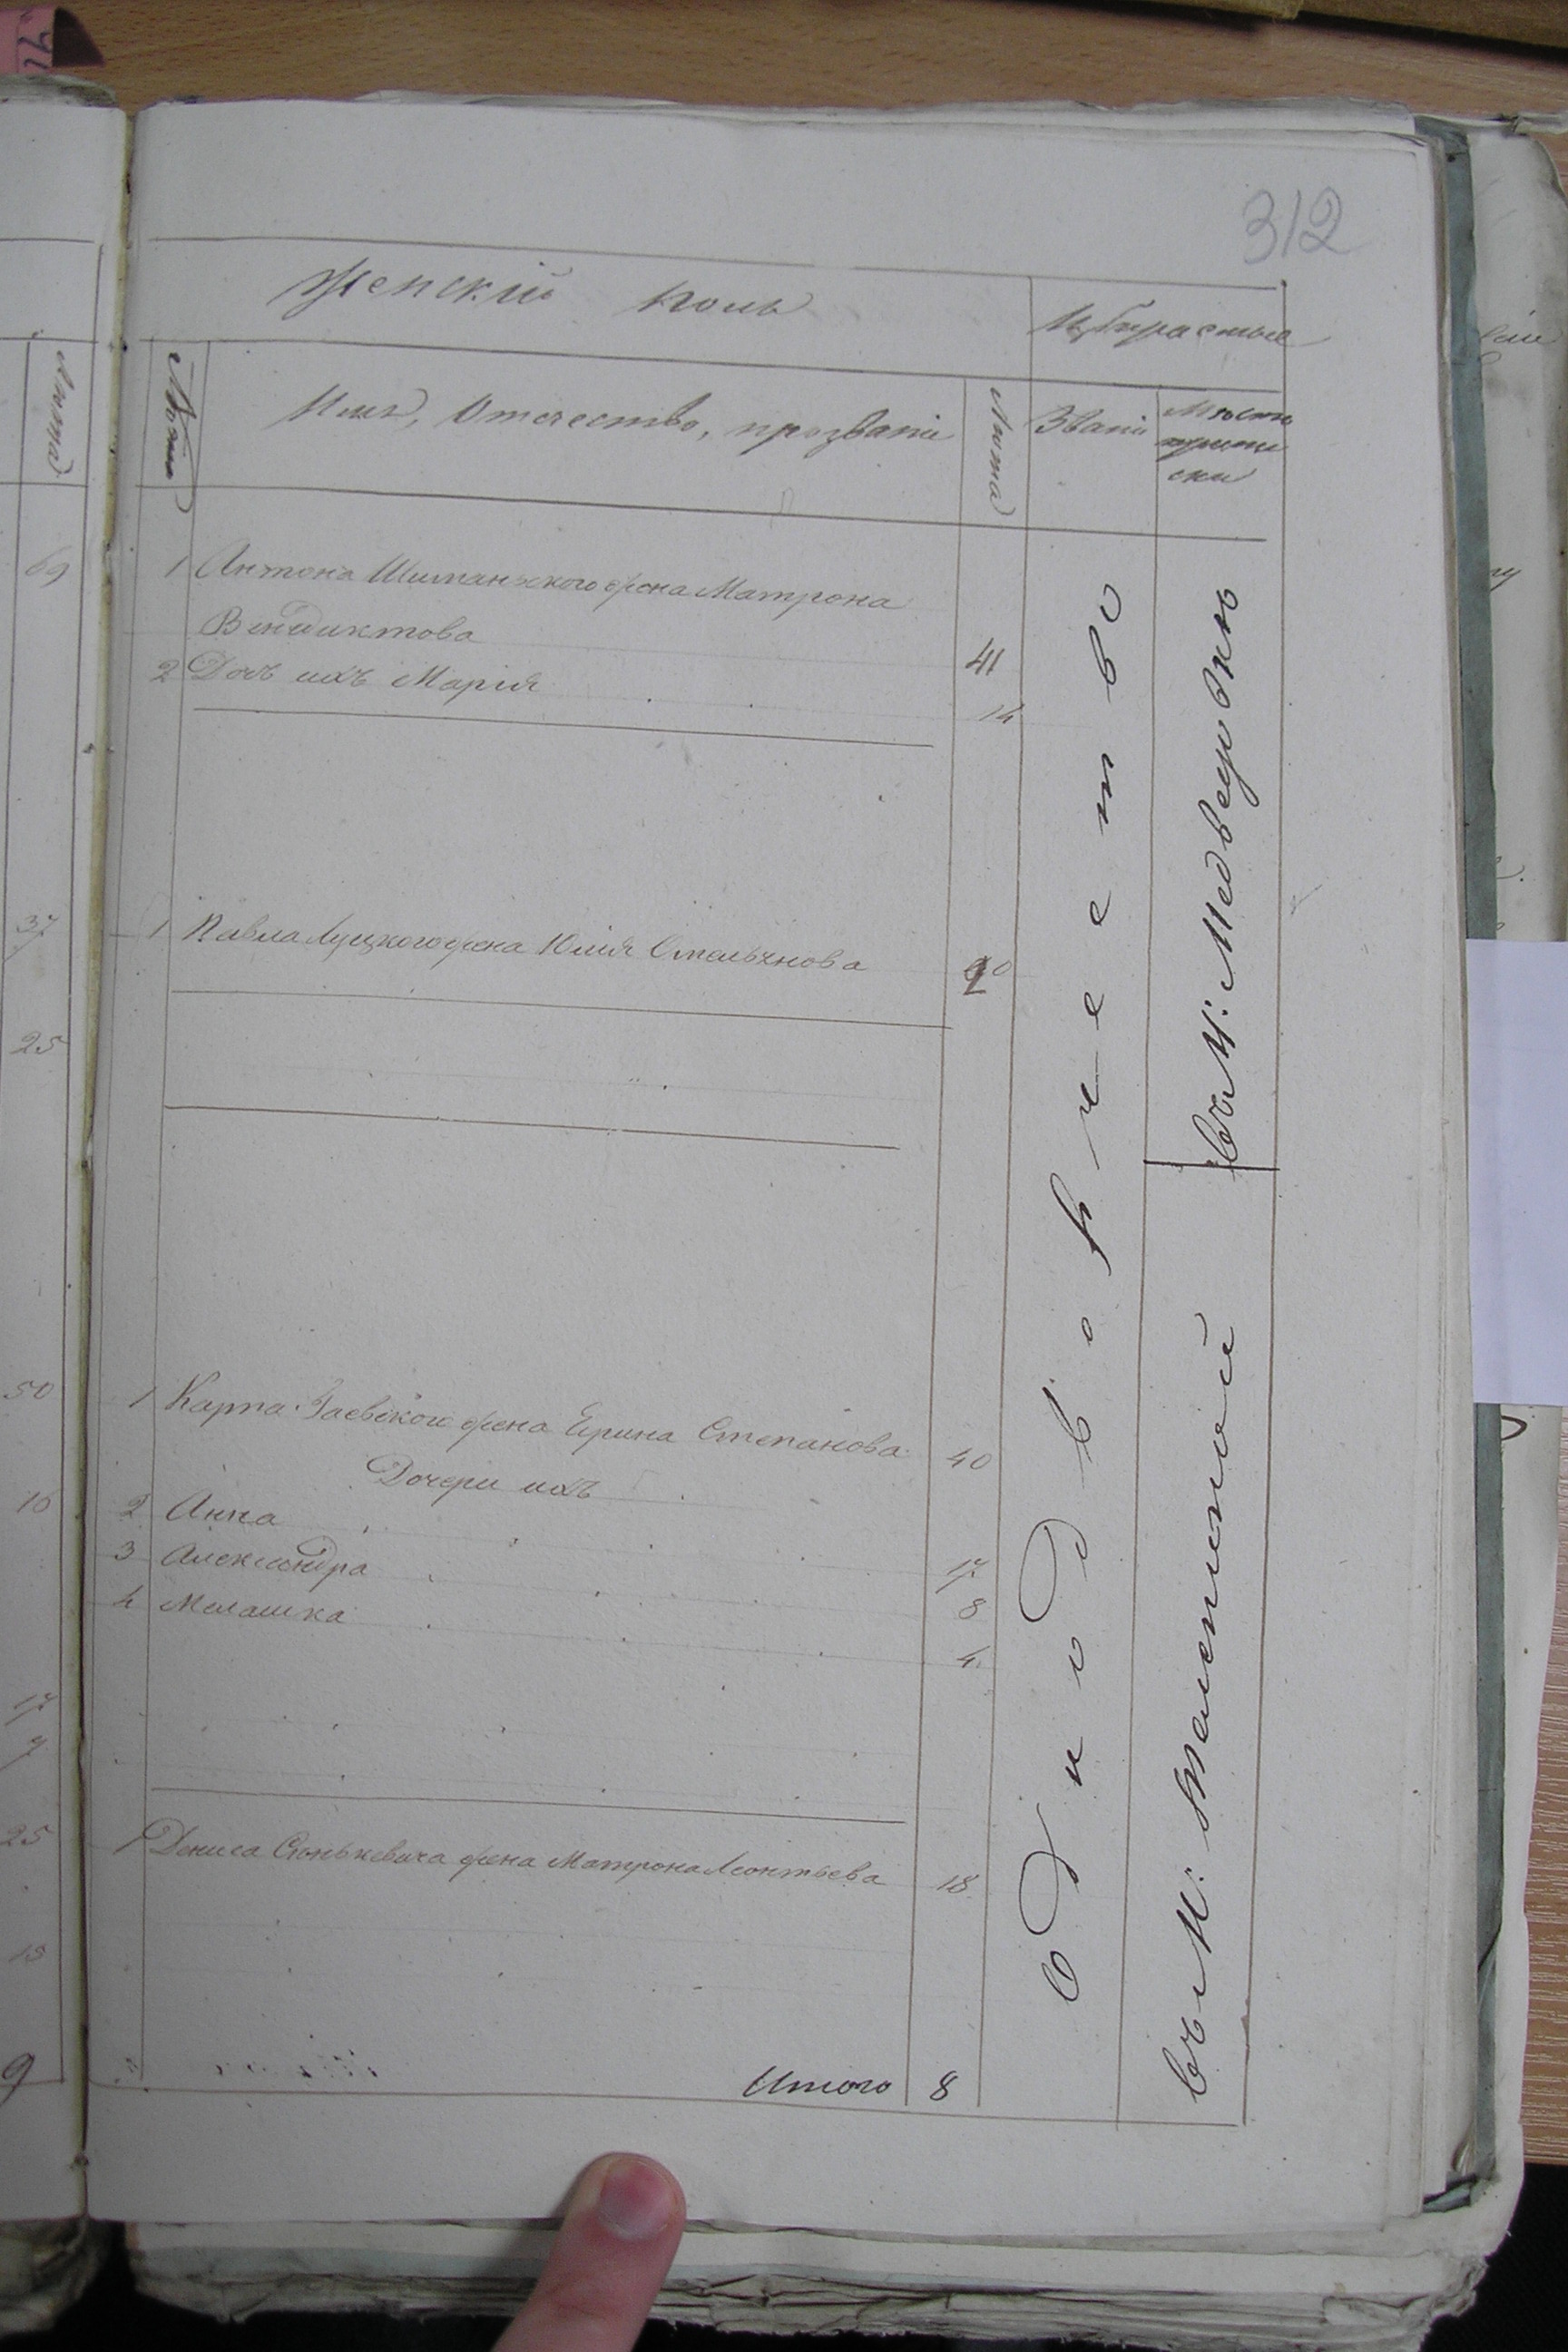 312
Женскій полъ
Избираемые
Лѣта
Имя, Отчество, прозваніе
Лѣта
Званіе
Мѣсто
приписки
69
1 Антона Шиманскаго жена Матрона
Вендиктова 41
2 Дочь ихъ Марія 14
37
1 Павла Луцкого жена Юлія Омельянова
25
50
1 Карпа Гаевскаго жена Ирина Степанова 40
Дочери ихъ
16
2 Анна 17
3 Александра 8
4 Мелашка 4
17
25
1 Дениса Сенькевича жена Матрона Леонтьева 18
9
Итого 8
Однодворчество
въ М: Медведовкѣ